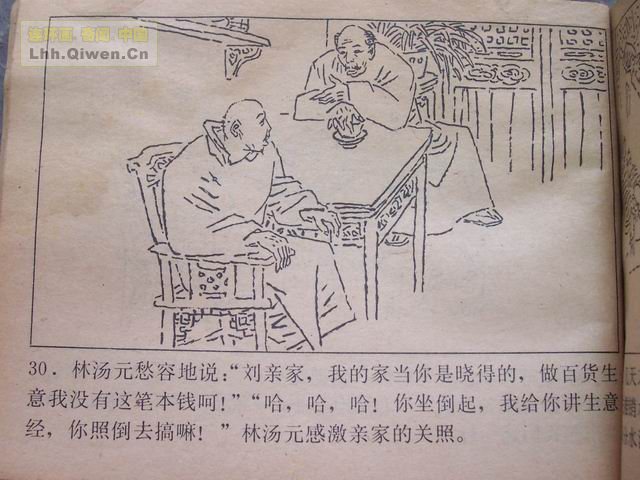 连环画.奇闻.中国
Lhh.Qiwen.Cn
30．林汤元愁容地说：“刘亲家，我的家当你是晓得的，做百货生
意我没有这笔本钱呵！”“哈，哈，哈！你坐倒起，我给你讲生意
经，你照倒去搞嘛！”林汤元感激亲家的关照。